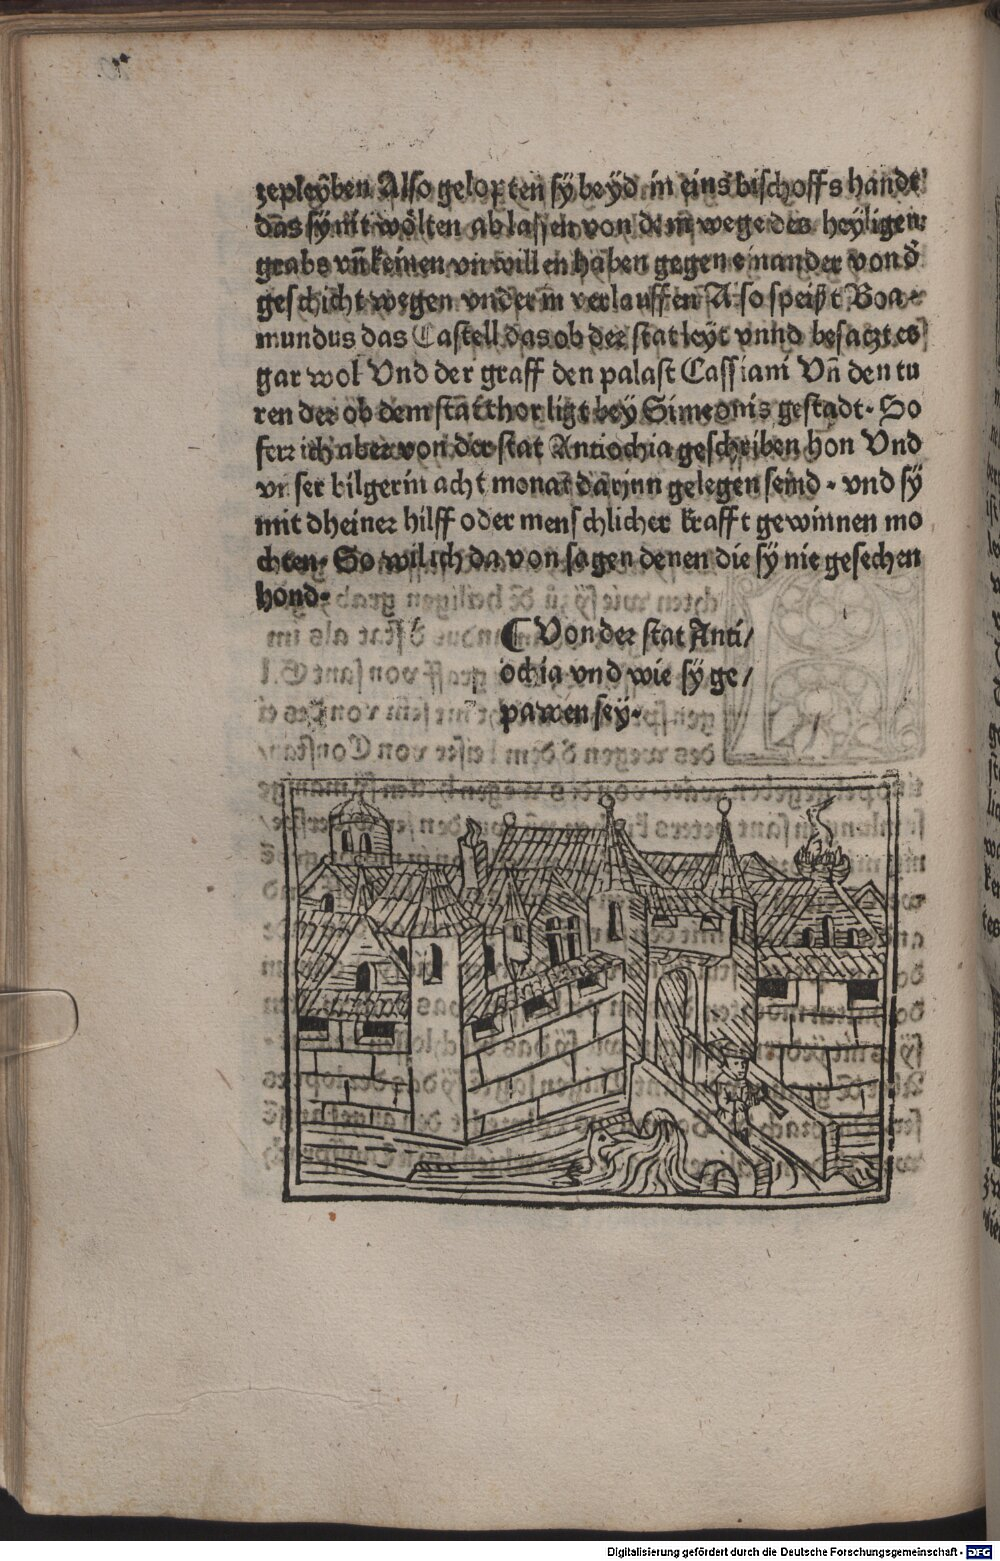 zepleyben Also gelopten sÿ beÿd in eins bischoffs handt
das sÿ nit wölten ablassen von dem wege des heyligen
grabs vn̄ keinen vnwillen haben gegen einander von d̕
geschicht wegen vnder in verlauffen Also speißt Boa-
mundus das Castell das ob der stat leyt vnnd besaczt es
gar wol Vnd der graff den palast Cassiani Vn̄ den tu
ren der ob dem stat thor ligt bey Simeonis gestadt. So
ferr ich aber von der stat Antiochia geschriben hon Vnd
vnser bilgerin acht monat darinn gelegen seind. vnd sÿ
mit dheiner hilff oder menschlicher krafft gewinnen mo
chten. So wil ich da von sagen denen die sÿ nie gesechen
hond.
¶ Von der stat Anti/
ochia vnd wie sÿ ge/
pawen seÿ.
Digitalisierung gefördert durch die Deutsche Forschungsgemeinschaft - DFG